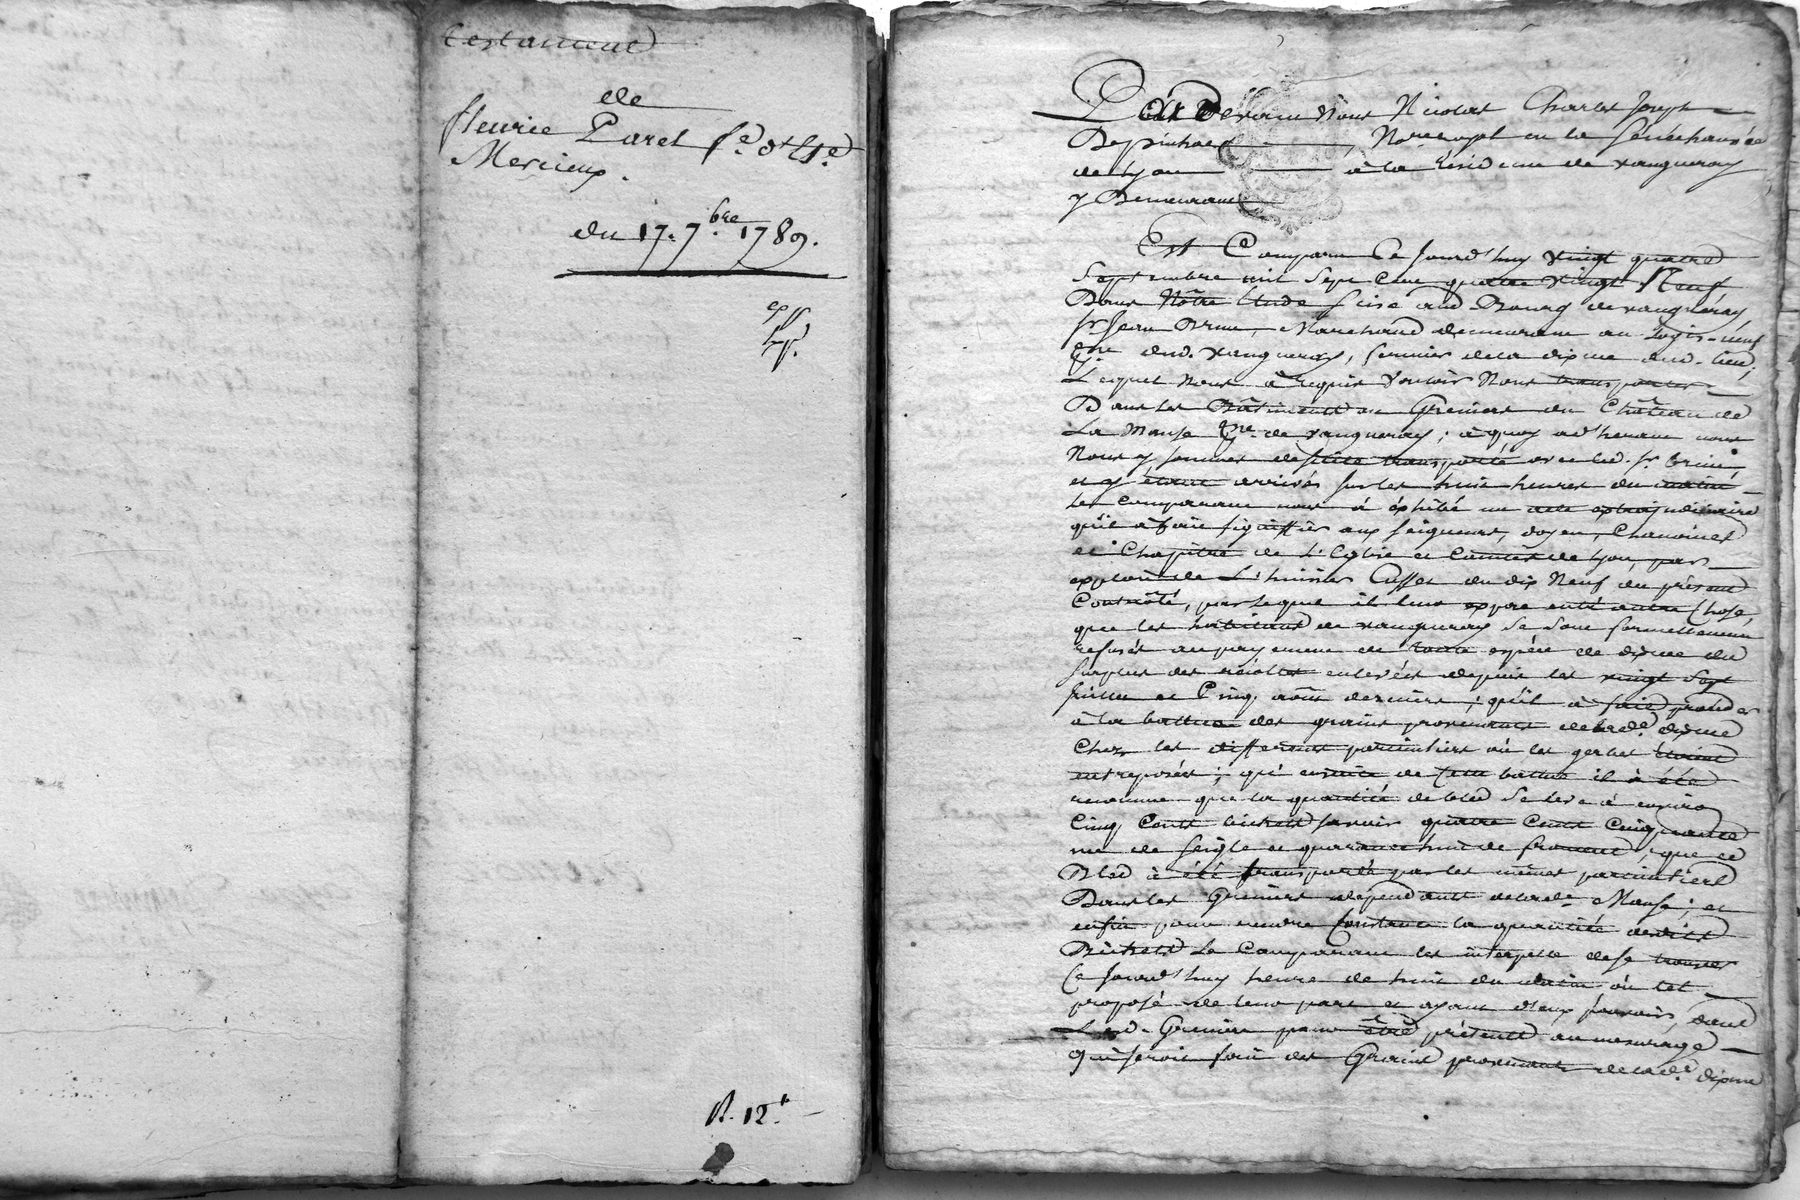 testament
de
fleurie Paret fe. d'Et.e
Mercieux.
du 17. 7.bre 1789.
exp
R. 12 s
Par Devant Nous Nicolas Charles Joseph
Depinhac, No.re royal en la Sénéchaussée
de Lyon à la résidence de vaugneray
y Demeurant
Est Comparu Ce Jourd'huy vingt quatre
Septembre mil Sept Cent quatre vingt Neuf
Dans Nôtre Etude Scise aud Bourg de vaugneray,
Sr Jean Brun, Marchand demeurant au Logis-neuf
P.sse dud. vaugneray, fermier de la dixme dud. lieu,
Lequel nous à requis vouloir Nous transporter
Dans les Bâtiments ou Greniers du Château de
La Manse P.sse de vaugneray; à quoy adherant nous
Nous y sommes de suite transporté avec led. Sr brun
et y étant arrivés sur les huit heures du matin
Le comparant nous à éxhibé un acte extrajudiciaire
qu'il à fait signiffier aux Seigneurs, doyen, Chanoines
et Chapitre de L'Eglise et Comtes de Lyon, par
exploit de L'huissier Cusset du dix Neuf du présent
Controlé, par lequel il leur expose entre autre Chose,
que les habitants de vaugneray se sont formellement
refusés au payement de toute espèce de dixme du
surplus des récoltes enlevées depuis les vingt Sept
juillet et Cinq août derniers; qu'il à fait proceder
à la batture des grains provenants de lad.e dixme
Chez les differents particuliers où les gerbes étoient
entreposées; qu'ensuite de cette batture il à été
reconnu que la quantité de bled se leve à environ
Cinq Cents bichets sçavoir quatre Cents Cinquante
un de seigle et quarante huit de froment, que ce
Bled à été transporté par les mêmes particuliers
Dans les Greniers dépendants de lad.e Manse; et
enfin pour rendre Constante la quantité desdits
Bichets Le Comparant les interpelle de se trouver
Ce Jourd'huy heure de huit du matin ou tel
préposé de leur part et ayant d'eux pouvoir, dans
Lesd. Greniers pour être présents au mesurage
qui seroit fait des Grains provenants de lad.e dixme